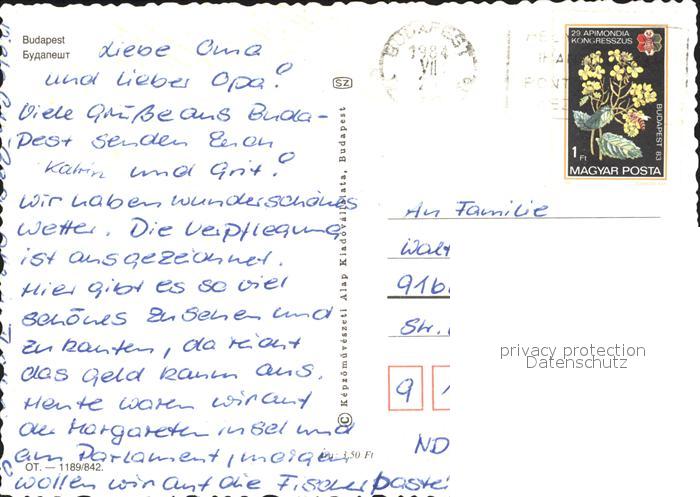 Budapest
Будапешт
Liebe Oma
und lieber Opa!
Viele Grüße aus Buda-
Pest senden Euch
Katrin und Grit!
Wir haben wunderschönes
Wetter. Die Verpflegung
ist ausgezeichnet.
Hier gibt es so viel
schönes zu sehen und
zu kaufen, da reicht
das Geld kaum aus.
Heute waren wir auf
der Margareteninsel und
am Parlament, morgen
wollen wir auf die Fischerbastei
OT. — 1189/842.
SZ
© Képzőművészeti Alap Kiadóvállalata, Budapest
Ára: 3,50 Ft
BUDAPEST
1984
VII
29 APIMONDIA
KONGRESSZUS
BUDAPEST 83
1 Ft
MAGYAR POSTA
An Familie
Walt
916
Str.
9 1
ND
privacy protection
Datenschutz